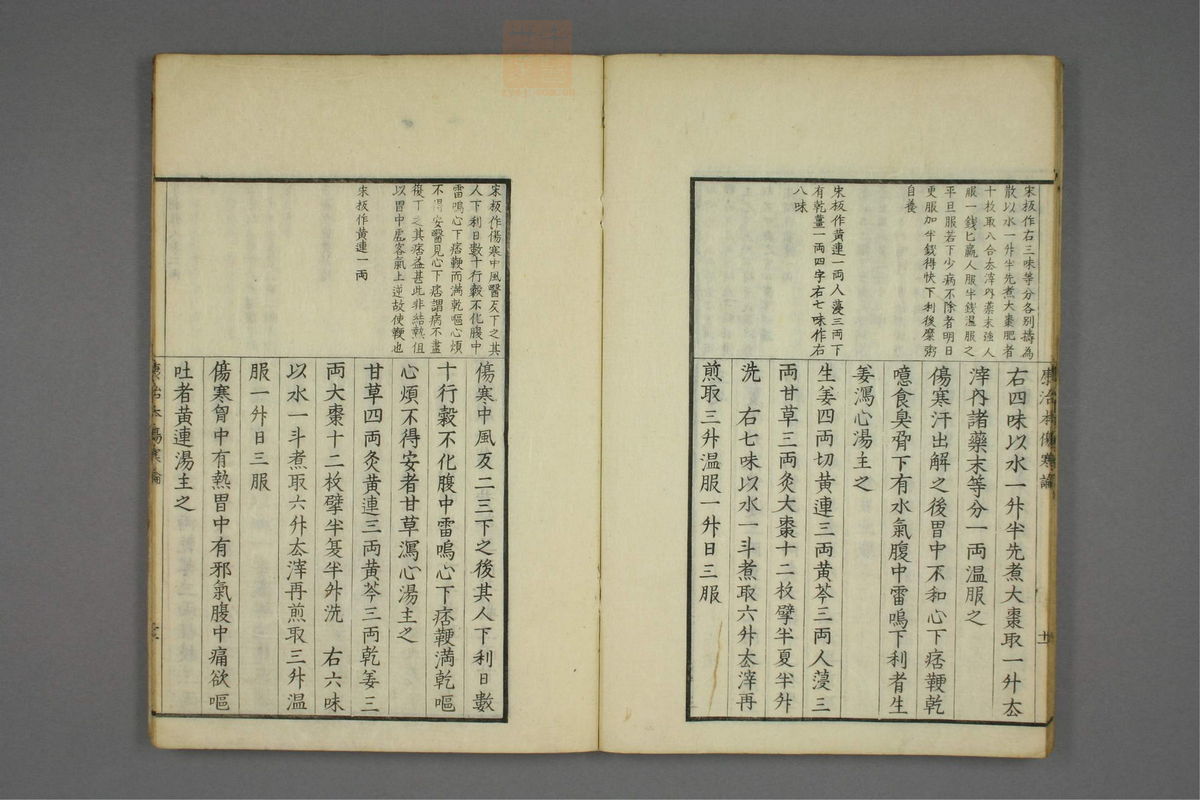 宋板作右三味等分各別擣為
散以水一升半先煮大棗肥者
十枚取八合去滓內藥末強人
服一錢匕羸人服半錢温服之
平旦服若下少病不除者明日
更服加半錢得快下利後糜粥
自養
宋板作黄連一両人蓡三両下
有乾薑一両四字右七味作右
八味
康治本傷寒論
右四味以水一升半先煮大棗取一升去
滓內諸藥末等分一両温服之
傷寒汗出解之後胃中不和心下痞鞕乾
噫食臭脅下有水氣腹中雷鳴下利者生
姜瀉心湯主之
生姜四両切黄連三両黄芩三両人蓡三
両甘草三両灸大棗十二枚擘半夏半升
洗　右七味以水一斗煮取六升去滓再
煎取三升温服一升日三服
十一
宋板作傷寒中風醫反下之其
人下利日數十行穀不化腹中
雷鳴心下痞鞕而滿乾嘔心煩
不得安醫見心下痞謂病不盡
復下之其痞益甚此非結熱但
以胃中虛客氣上逆故使鞕也
宋板作黄連一両
傷寒中風反二三下之後其人下利日數
十行穀不化腹中雷鳴心下痞鞕満乾嘔
心煩不得安者甘草瀉心湯主之
甘草四両灸黄連三両黄芩三両乾姜三
両大棗十二枚擘半夏半升洗　右六味
以水一斗煮取六升去滓再煎取三升温
服一升日三服
傷寒胷中有熱胃中有邪氣腹中痛欲嘔
吐者黄連湯主之
康治本傷寒論